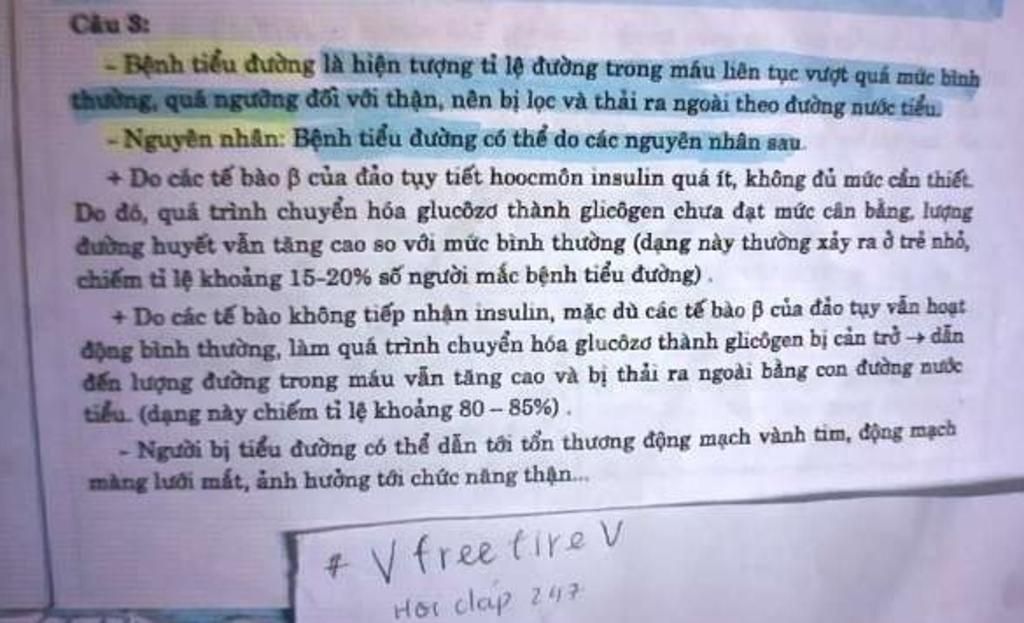 Câu 3:
- Bệnh tiểu đường là hiện tượng tỉ lệ đường trong máu liên tục vượt quá mức bình
thường, quá ngưỡng đối với thận, nên bị lọc và thải ra ngoài theo đường nước tiểu.
- Nguyên nhân: Bệnh tiểu đường có thể do các nguyên nhân sau.
+ Do các tế bào β của đảo tụy tiết hoocmôn insulin quá ít, không đủ mức cần thiết.
Do đó, quá trình chuyển hóa glucôzơ thành glicôgen chưa đạt mức cân bằng, lượng
đường huyết vẫn tăng cao so với mức bình thường (dạng này thường xảy ra ở trẻ nhỏ,
chiếm tỉ lệ khoảng 15-20% số người mắc bệnh tiểu đường).
+ Do các tế bào không tiếp nhận insulin, mặc dù các tế bào β của đảo tụy vẫn hoạt
động bình thường, làm quá trình chuyển hóa glucôzơ thành glicôgen bị cản trở → dẫn
đến lượng đường trong máu vẫn tăng cao và bị thải ra ngoài bằng con đường nước
tiểu. (dạng này chiếm tỉ lệ khoảng 80 – 85%).
- Người bị tiểu đường có thể dẫn tới tổn thương động mạch vành tim, động mạch
màng lưới mắt, ảnh hưởng tới chức năng thận...
# V free fire V
Hoi đáp 247